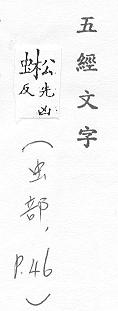 五經文字
蜙先凶反
(虫部,P.46)